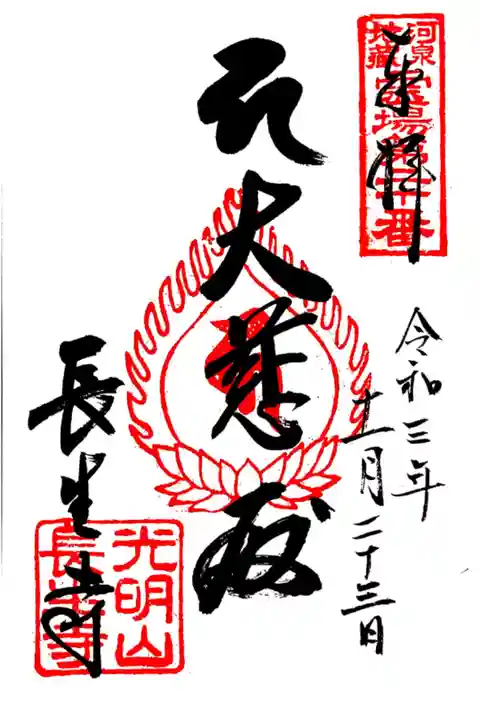 奉拝
河泉
地蔵
霊場第
令和三年
十一月二十三日
大慈殿
長生寺
光明山
長生寺